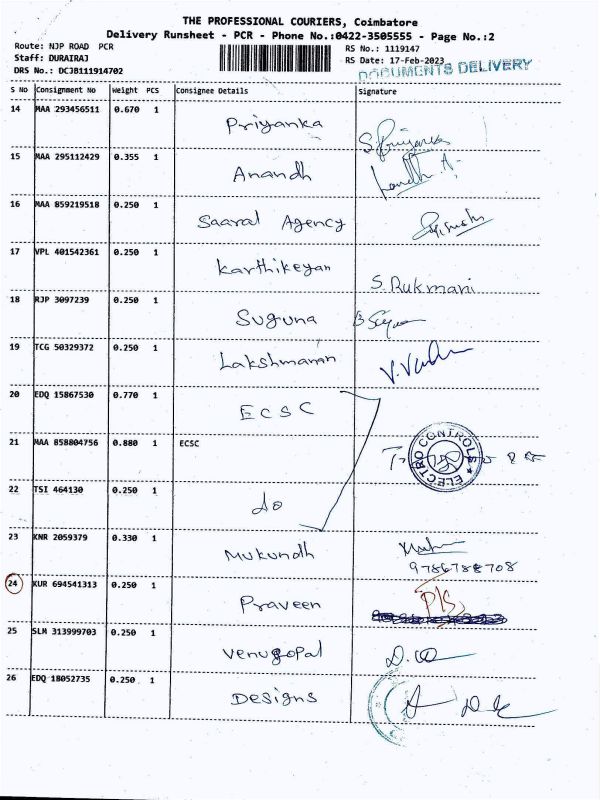 THE PROFESSIONAL COURIERS, Coimbatore
Delivery Runsheet - PCR - Phone No.:0422-3505555 - Page No.:2
Route: NJP ROAD PCR RS No.: 1119147
Staff: DURAIRAJ RS Date: 17-Feb-2023
DRS No.: DCJB111914702 DOCUMENTS DELIVERY
S NO Consignment No Weight PCS Consignee Details Signature
14 MAA 293456511 0.670 1
Priyanka S. Priyanka
15 MAA 295112429 0.355 1
Anandh
16 MAA 859219518 0.250 1
Saaral Agency
17 VPL 401542361 0.250 1
Karthikeyan S. Rukmani
18 RJP 3097239 0.250 1
Suguna
19 TCG 50329372 0.250 1
Lakshmanan
20 EDQ 15867530 0.770 1
ECSC
21 MAA 858804756 0.880 1 ECSC
ELECTRO CONTROLS
22 TSI 464130 0.250 1
do
23 KNR 2059379 0.330 1
Mukundh
9786788708
24 KUR 694541313 0.250 1
Praveen P/S
25 SLM 313999703 0.250 1
Venugopal
26 EDQ 18052735 0.250 1
Designs